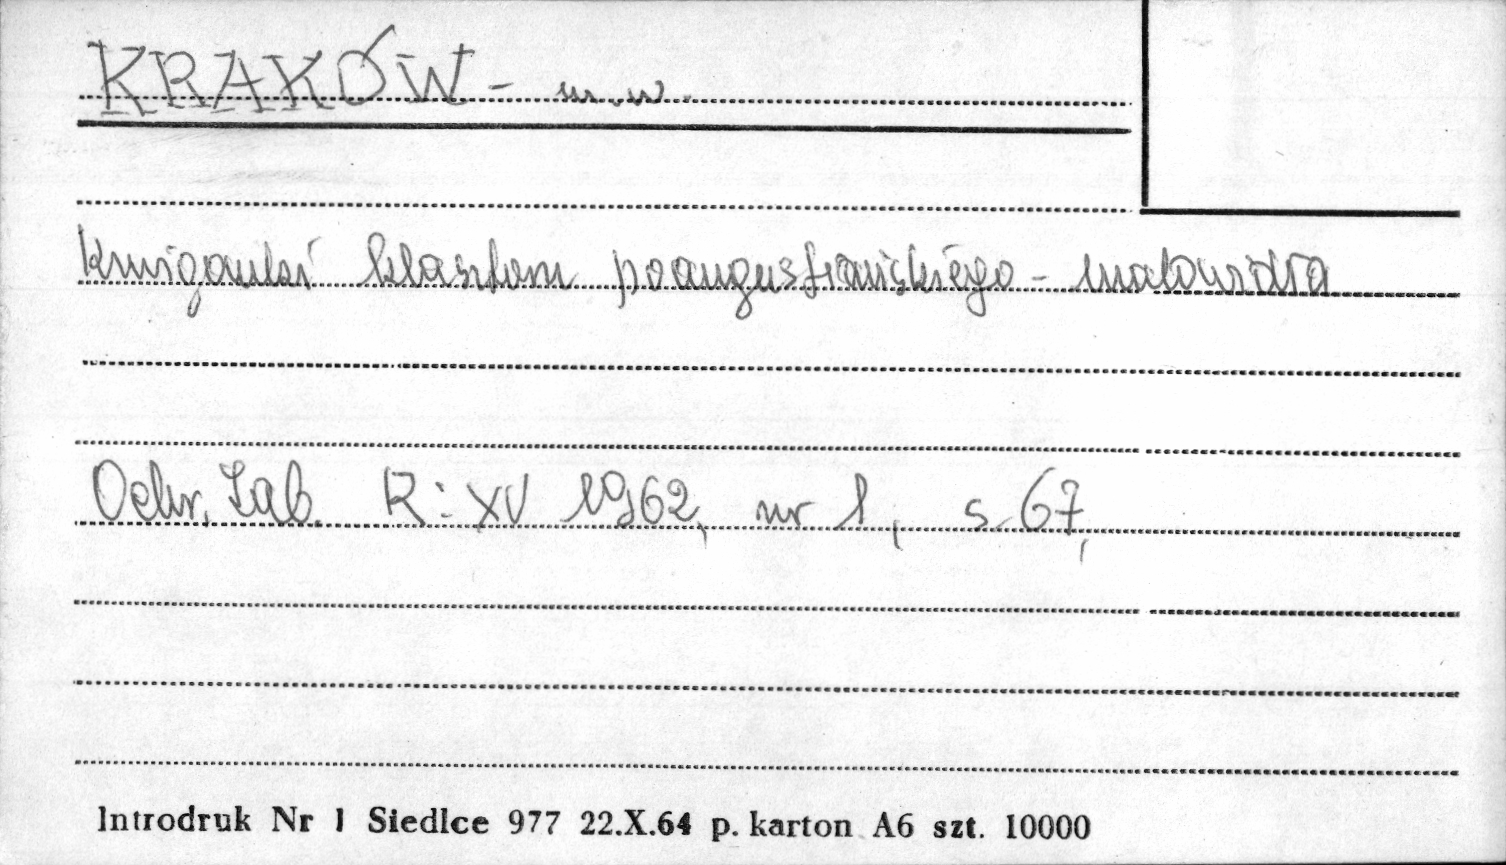 KRAKÓW - m.w.
Krużganki klasztoru poaugustiańskiego - malowidła
Ochr. Zab. R: XV 1962, nr 1, s. 67,
Introdruk Nr 1 Siedlce 977 22.X.64 p. karton A6 szt. 10000